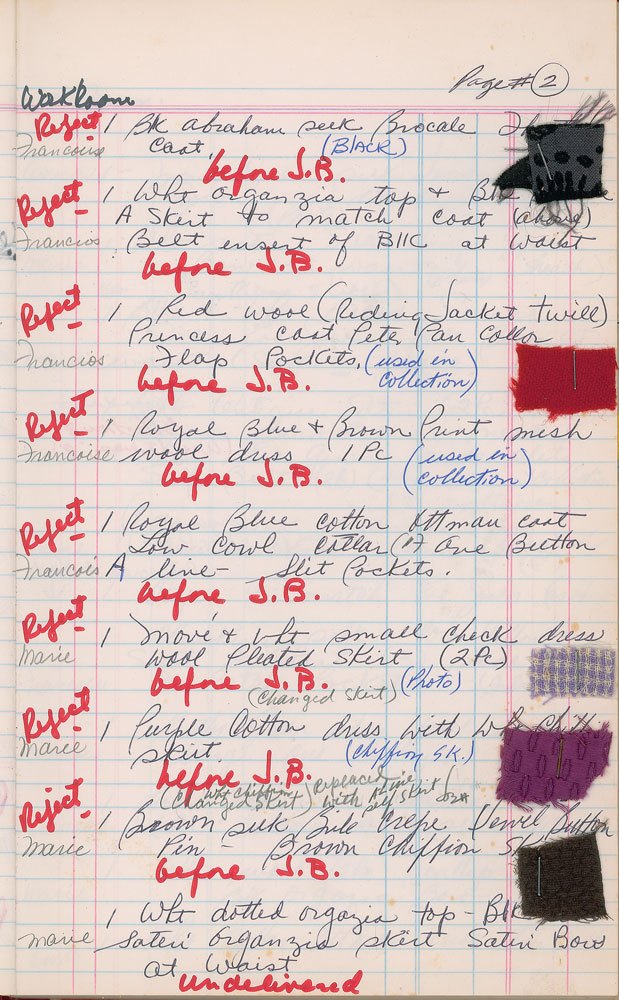 Page # 2
WorkRoom
Reject 1 Blk abraham silk Brocade
Francoise Coat (BLACK)
before J.B.
Reject 1 Wht organzia top + Blk
A Skirt to match coat (above)
Francios Belt insert of Bllk at Waist
before J.B.
Reject 1 Red wool (Riding Jacket twill)
Princess coat Peter Pan Collor
Francios Flap Pockets. (used in
before J.B. collection)
Reject 1 Royal Blue + Brown Print mesh
Francoise wool dress 1 Pc (used in
before J.B. collection)
Reject 1 Royal Blue cotton Ottman coat
Low cowl collar One Button
Francois A line - Slit Pockets.
before J.B.
Reject 1 Move + wht small check dress
Marie wool Pleated Skirt (2 Pc)
before J.B. (Photo)
(Changed Skirt)
Reject 1 Purple Cotton dress with wht
Marie skirt. (Chiffion SK.)
before J.B.
(Wht Chiffion Replaced
Changed Skirt) with A line
self skirt
Reject 1 Brown silk Crepe Jewel Button
Marie Pin - Brown Chiffion
before J.B.
1 Wht dotted orgazia top - Blk
Marie Saten organzia skirt Saten Bows
at Waist
undelivered